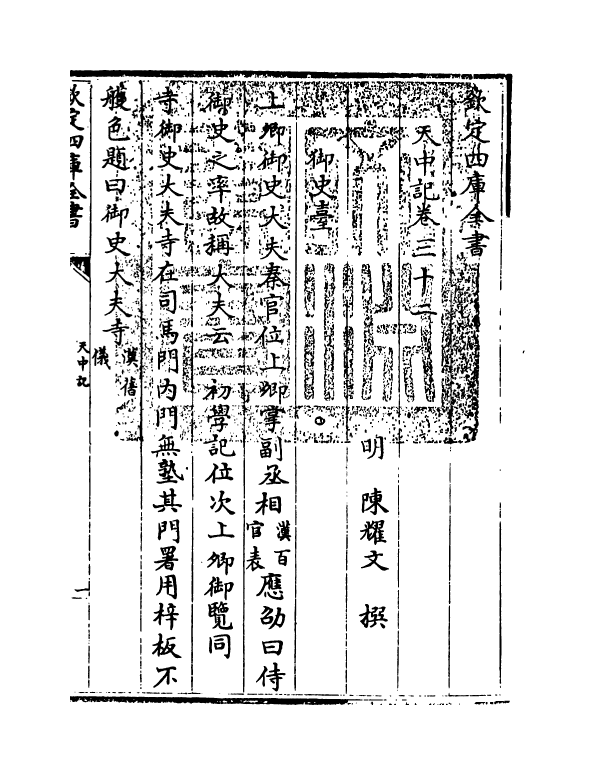 欽定四庫全書
天中記卷三十二
明 陳耀文 撰
御史臺
上卿御史大夫秦官位上卿掌副丞相漢百官表應劭曰侍
御史之率故稱大夫云 初學記位次上卿御覽同
寺御史大夫寺在司馬門內門無塾其門署用梓板不
雘色題曰御史大夫寺漢舊儀
欽定四庫全書
天中記
一